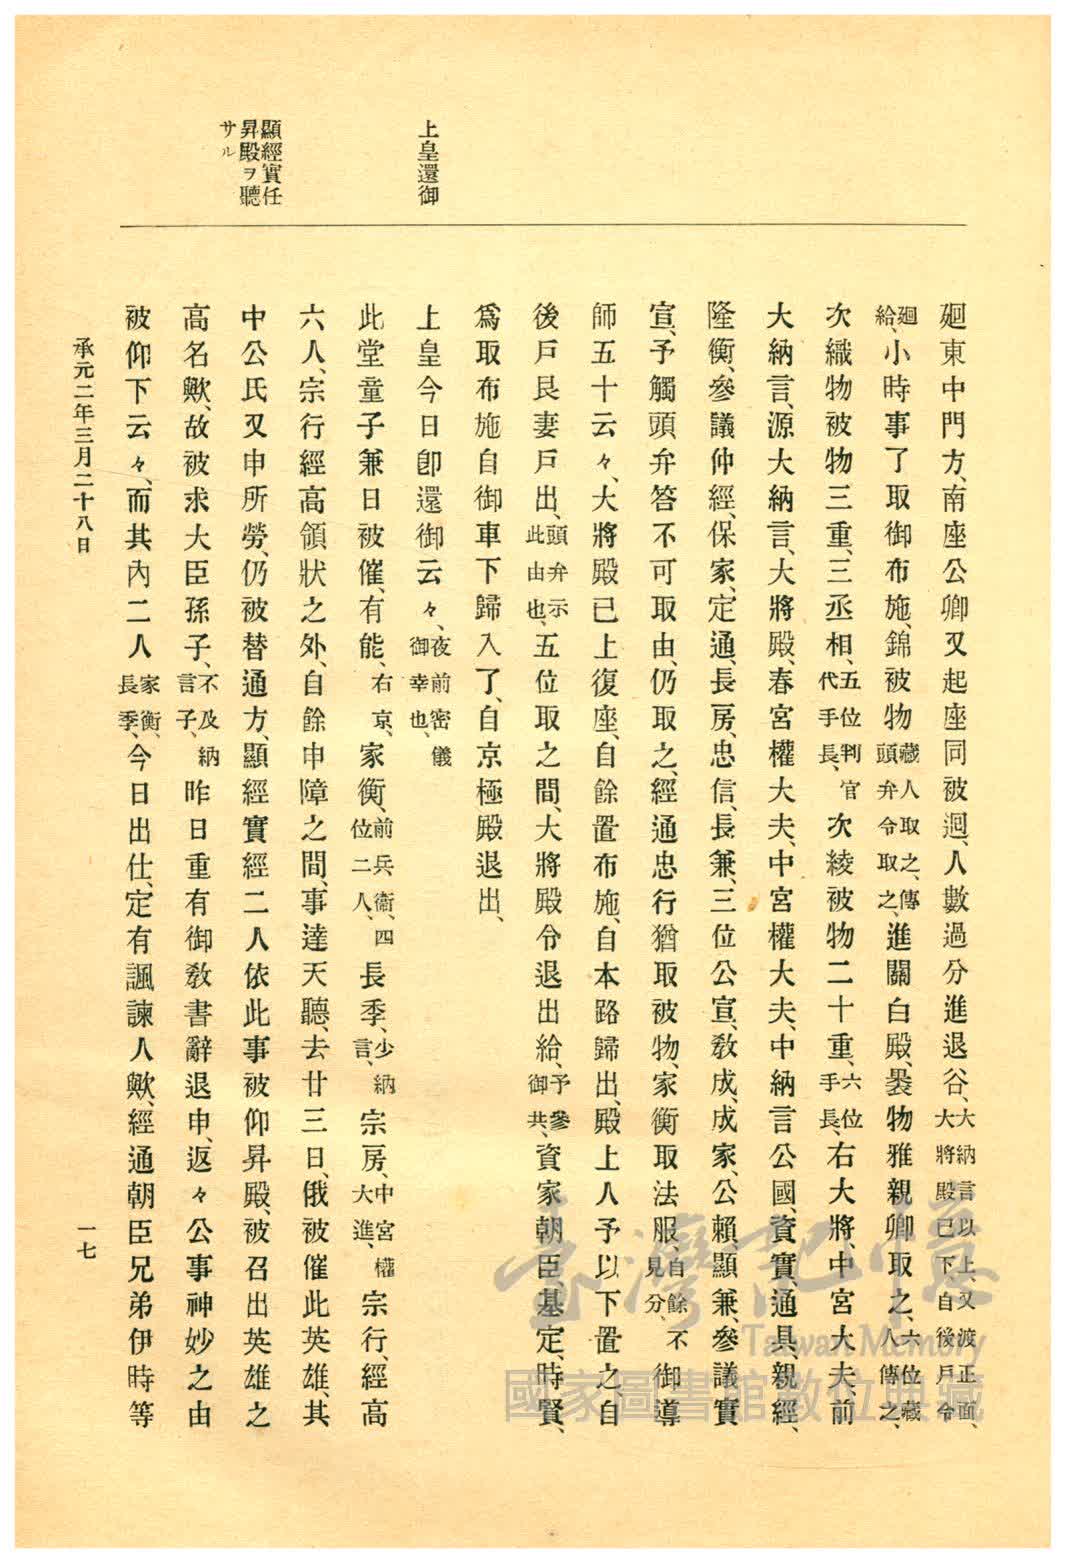 上皇還御
顯經實任
昇殿ヲ聽
サル
廻東中門方、南座公卿又起座同被廻、人數過分進退谷、大納言以上、又渡正面、大將殿已下、自後戶令
廻給、小時事了取御布施、錦被物藏人取之、傳頭弁令取之、進關白殿、裝物雅親卿取之、六位藏人傳之、
次織物被物三重、三丞相、五位判官代手長、次綾被物二十重、六位手長、右大將、中宮大夫、前
大納言、源大納言、大將殿、春宮權大夫、中宮權大夫、中納言公國、資實、通具、親經、
隆衡、參議仲經、保家、定通、長房、忠信、長兼、三位公宣、敎成、成家、公賴、顯兼、參議實
宣、予觸頭弁答不可取由、仍取之、經通忠行猶取被物、家衡取法服、自餘不見分、御導
師五十云々、大將殿已上復座、自餘置布施、自本路歸出、殿上人予以下置之、自
後戶艮妻戶出、頭弁示此由也、五位取之間、大將殿令退出給、予參御共、資家朝臣、基定、時賢、
爲取布施自御車下歸入了、自京極殿退出、
上皇今日卽還御云々、夜前密儀御幸也、
此堂童子兼日被催、有能、右京、家衡、前兵衞、四位二人、長季、少納言、宗房、中宮權大進、宗行、經高
六人、宗行經高領狀之外、自餘申障之間、事達天聽、去廿三日、俄被催此英雄、其
中公氏又申所勞、仍被替通方、顯經實經二人依此事被仰昇殿、被召出英雄之
高名歟、故被求大臣孫子、不及納言子、昨日重有御敎書辭退申、返々公事神妙之由
被仰下云々、而其內二人家衡、長季、今日出仕、定有諷諫人歟、經通朝臣兄弟伊時等
承元二年三月二十八日
一七
臺灣記憶
Taiwan Memory
國家圖書館數位典藏